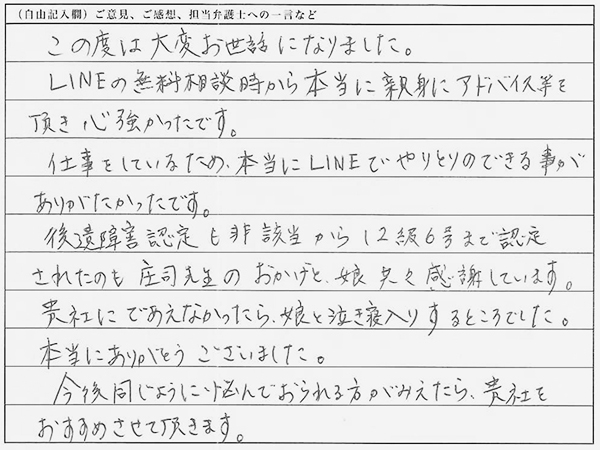 (自由記入欄)ご意見、ご感想、担当弁護士への一言など
この度は大変お世話になりました。
LINEの無料相談時から本当に親身にアドバイス等を
頂き心強かったです。
仕事をしているため、本当にLINEでやりとりのできる事が
ありがたかったです。
後遺障害認定も非該当から12級6号まで認定
されたのも庄司先生のおかげと、娘共々感謝しています。
貴社にであえなかったら、娘と泣き寝入りするところでした。
本当にありがとうございました。
今後同じように悩んでおられる方がみえたら、貴社を
おすすめさせて頂きます。